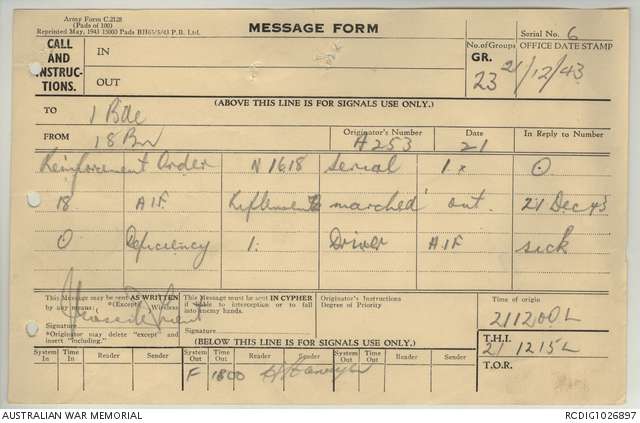 Army Form C.2128
(Pads of 100)
Reprinted May, 1943 15000 Pads BH65/5/43 P.B. Ltd.
MESSAGE FORM
Serial No. 6
CALL AND INSTRUC-TIONS.
IN
OUT
No. of Groups
GR. 23
OFFICE DATE STAMP
21/12/43
(ABOVE THIS LINE IS FOR SIGNALS USE ONLY.)
TO 1 Bde
FROM 18 Bn
Originator's Number
A253
Date
21
In Reply to Number
Reinforcement Order N1618 serial 1x O
18 AIF marched out. 21 Dec 43
O Deficiency 1: Driver AIF sick
This Message may be sent AS WRITTEN by any means: *(Except) Wireless
Signature
*Originator may delete "except" and insert "including."
This Message must be sent IN CYPHER if liable to interception or to fall into enemy hands.
Signature
Originator's Instructions
Degree of Priority
Time of origin
211200L
(BELOW THIS LINE IS FOR SIGNALS USE ONLY.)
T.H.I.
21 1215L
System In
Time In
Reader
Sender
System Out
Time Out
Reader
Sender
System Out
Time Out
Reader
Sender
T.O.R.
F 1800
AUSTRALIAN WAR MEMORIAL
RCDIG1026897